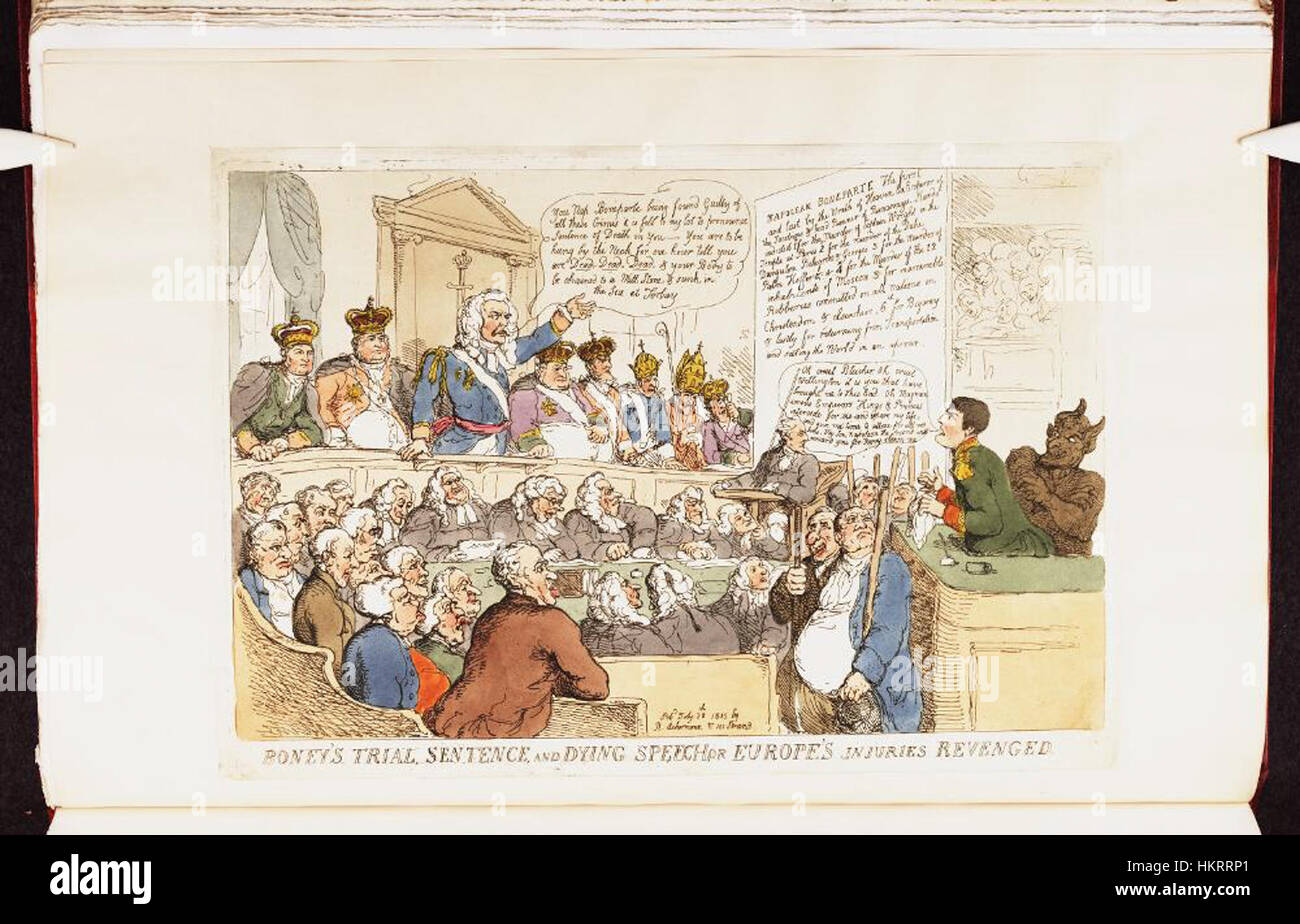 You Nap Boneparte being found Guilty of
all these Crimes it is fell to my lot to pronounce
Sentence of Death on You — You are to be
hung by the Neck for one hour till you
are Dead, Dead, Dead, & your Body to
be chained to a Mill Stone & sunk in
the Sea at Torbay
NAPOLEAN BONEPARTE The first
and last by the Wrath of Heaven Ex Emperor of
the Jacobins & Runner of Runaways, Stands
indicted 1st for the Murder of Captain Wright in the
Temple at Paris 2d for the murder of the Duke
Dangulem Pichegru & Georges 3d for the Murder of
Palm Hoffer &c &c 4th for the Murder of the 12
inhabitants of Moscow 5th for innumerable
Robberies committed on all Nations in
Christendom & elsewhere, 6th for Bigamy
& lastly for returning from Transportation
and setting the World in an uproar
Oh cruel Blucher Oh cruel
Wellington it is you that have
brought me to this End. Oh Magnanimous
Emperors Kings & Princes
intercede for me and spare my life
give me time to atone for all my
Son Napolean the
reward you for Mercy shewn me
Pubd July 28th 1815 by
R Ackermann No 101 Strand
BONEY'S TRIAL, SENTENCE, AND DYING SPEECH, OR EUROPE'S INJURIES REVENGED
alamy
alamy
alamy
alamy
a
a
a
a
alamy
Image ID: HKRRP1
www.alamy.com